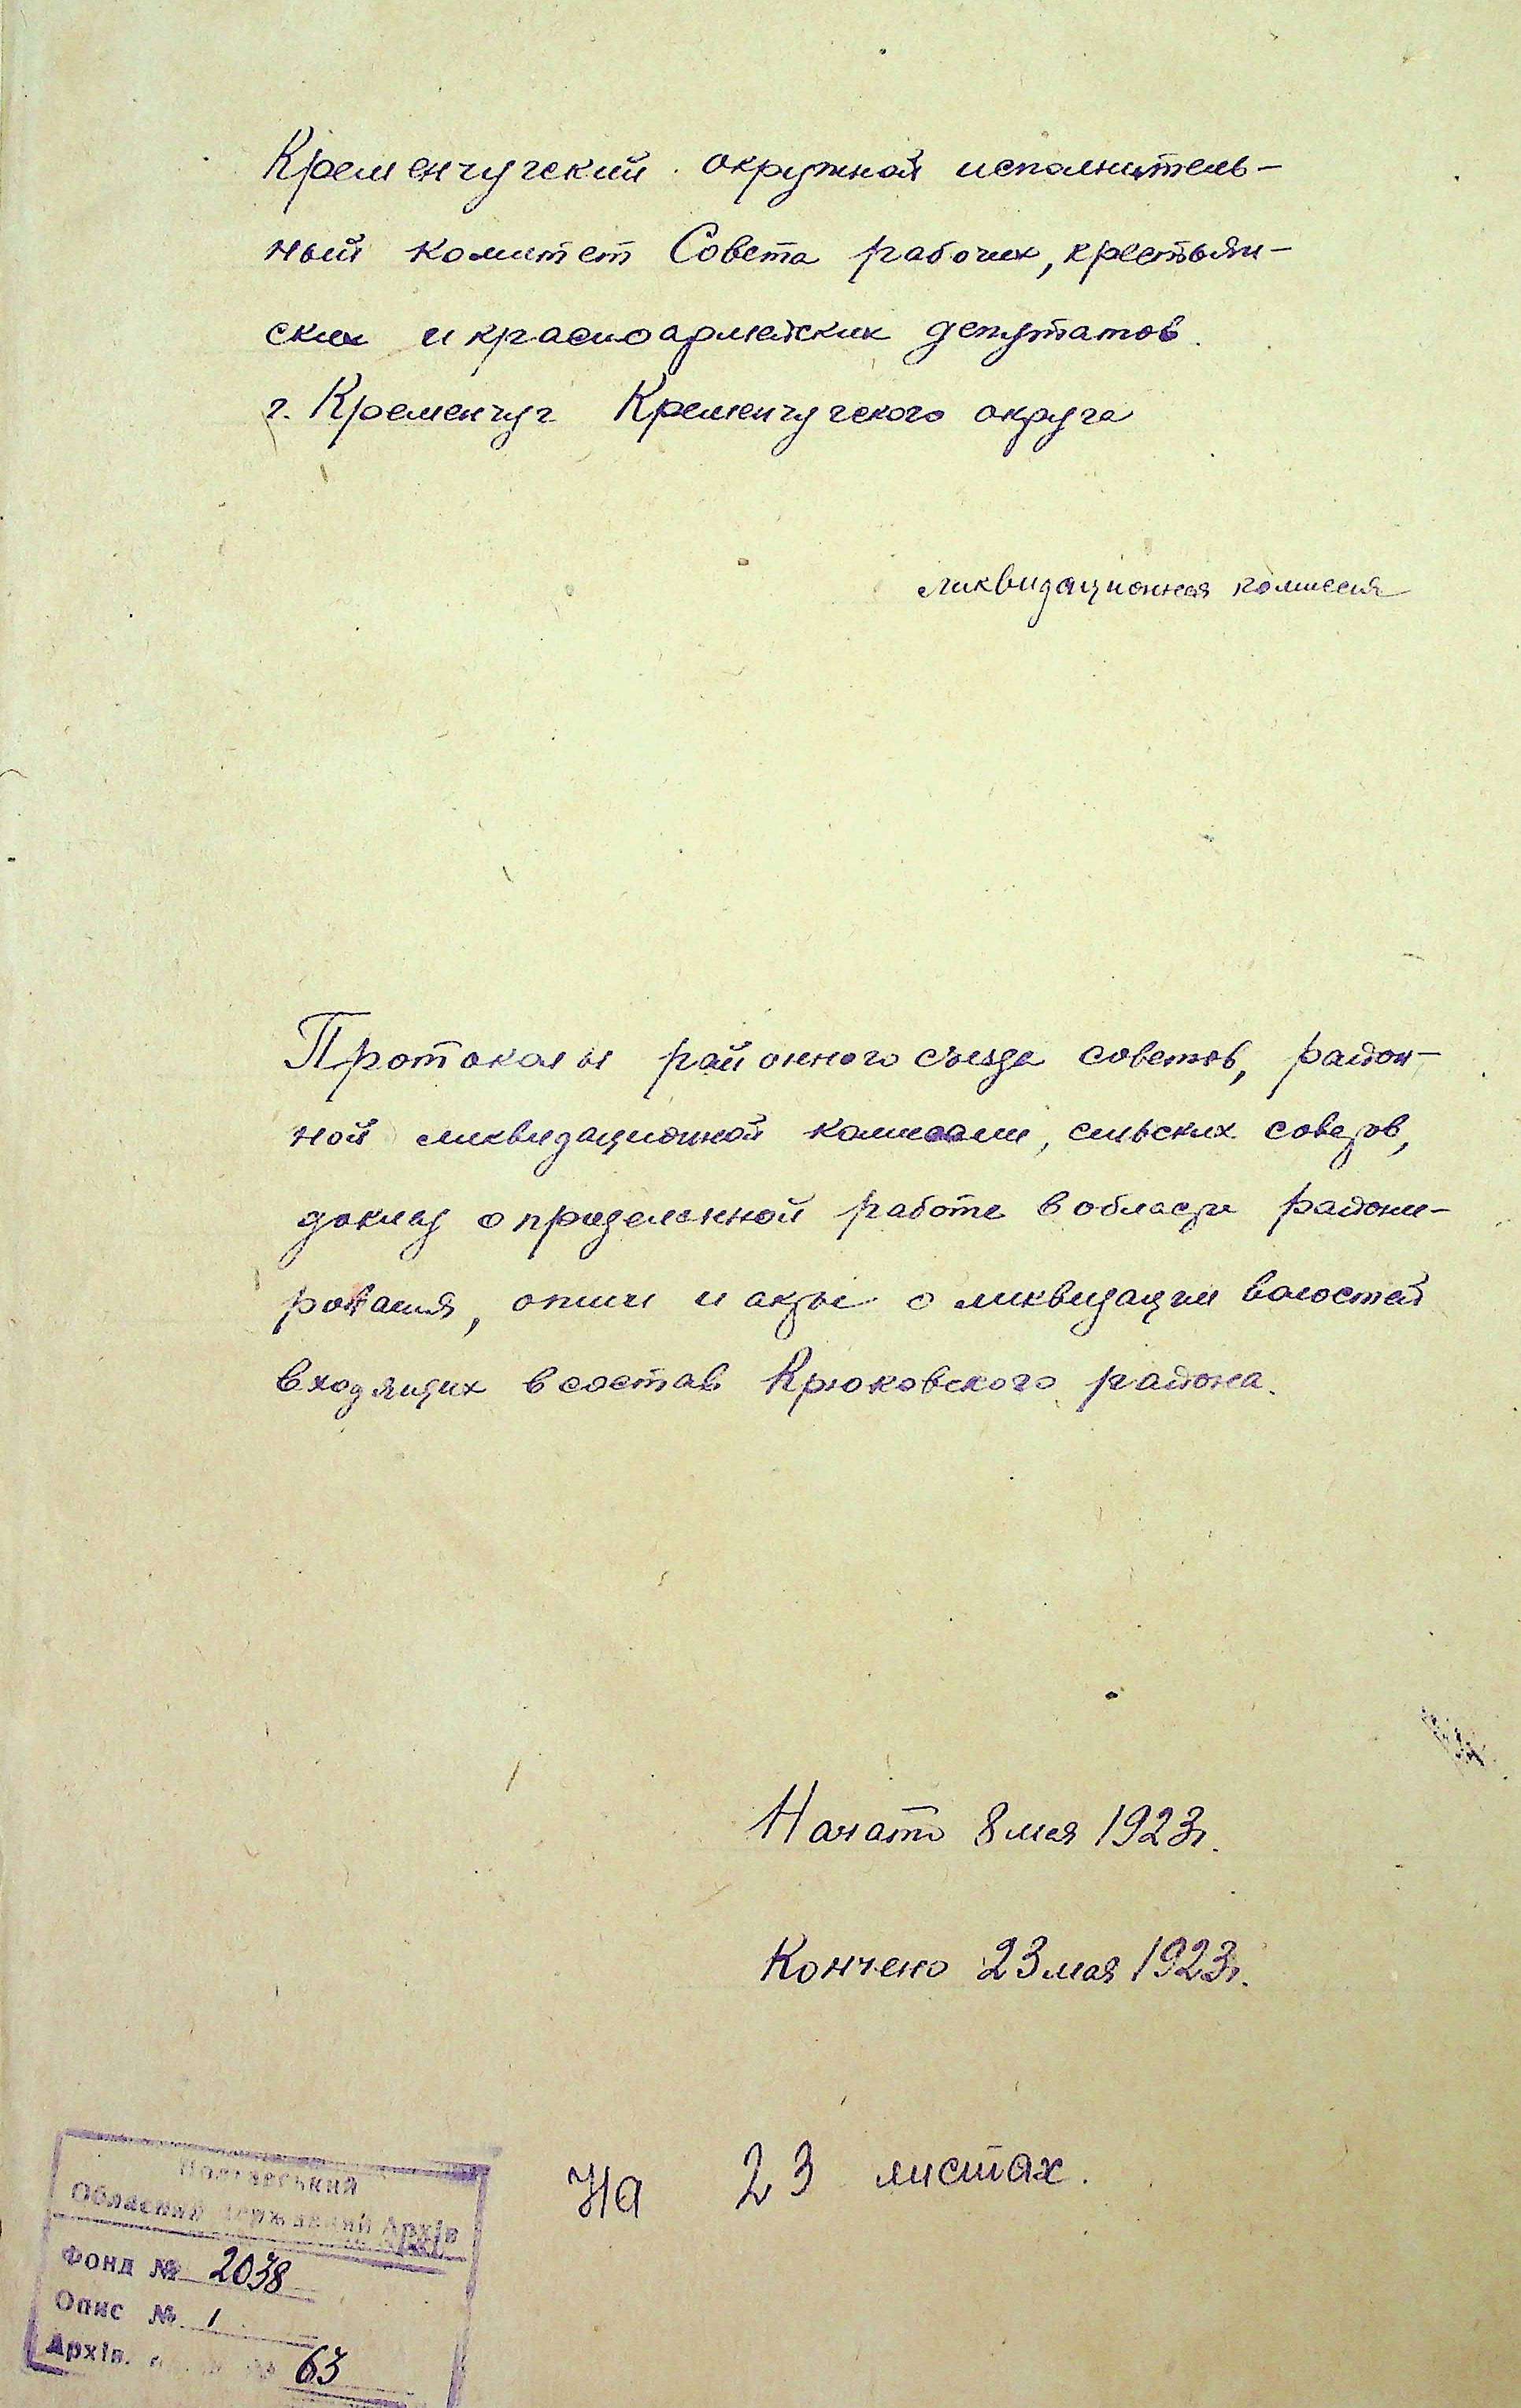 Кременчугский окружной исполнитель-
ный комитет Совета рабочих, крестьян-
ских и красноармейских депутатов.
г. Кременчуг Кременчугского округа
ликвидационная комиссия
Протоколы районного съезда советов, район-
ной ликвидационной комиссии, сельских советов,
доклад о проделанной работе в области райони-
рования, описи и акты о ликвидации волостей
входящих в состав Крюковского района.
Начато 8 мая 1923г.
Кончено 23 мая 1923г.
На 23 листах.
Полтавський
Обласний Державний Архів
Фонд № 2038
Опис № 1
Архів. № 63